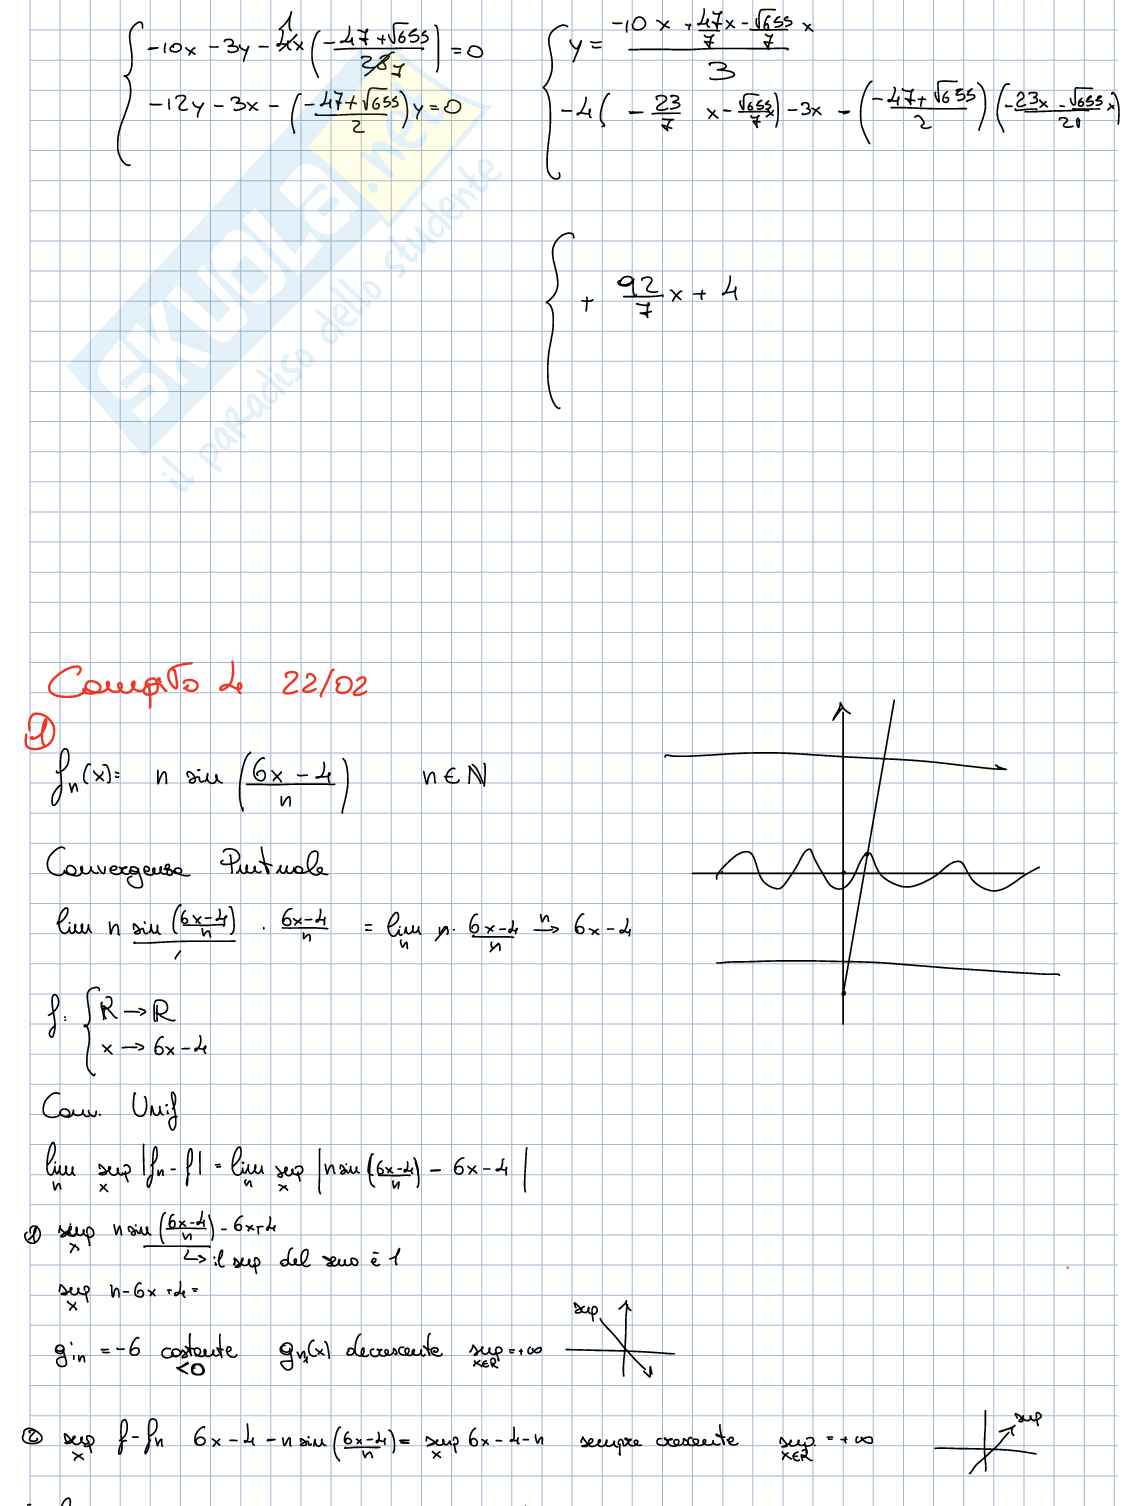 { -10x - 3y - 4x (-47+√655 / 28 7) = 0
-12y - 3x - (-47+√655 / 2) y = 0
{ y = (-10x + 47/7 x - √655/7 x) / 3
-4 ( -23/7 x - √655/7 x) - 3x - (-47+√655 / 2) (-23x - √655 x / 21)
{ + 92/7 x + 4
SKUOLA.net
il paradiso dello studente
Compito 4 22/02
①
fₙ(x)= n sin (6x-4 / n) n ∈ ℕ
Convergenza Puntuale
lim n sin (6x-4 / n) · 6x-4 / n = lim n n · 6x-4 / n →n 6x-4
f: { ℝ → ℝ
x → 6x-4
Conv. Unif
lim n sup x |fₙ - f| = lim n sup x |n sin (6x-4 / n) - 6x-4|
① sup x n sin (6x-4 / n) - 6x+4
↳ il sup del seno è 1
sup x n-6x+4=
g'ₙ = -6 costante <0 gₙ(x) decrescente sup x∈ℝ = +∞
sup
② sup x f-fₙ 6x-4-n sin (6x-4 / n) = sup x 6x-4-n sempre crescente sup x∈ℝ = +∞
sup